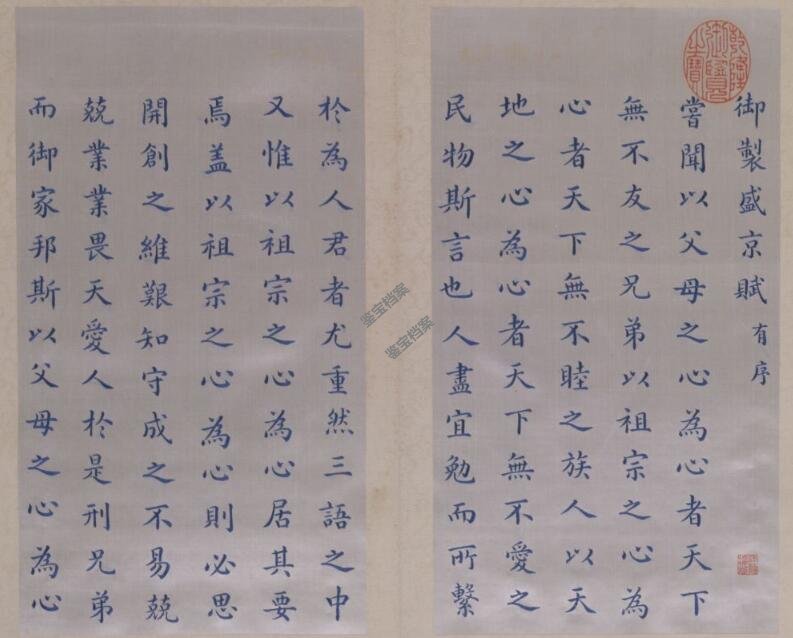 御製盛京賦有序
嘗聞以父母之心為心者天下
無不友之兄弟以祖宗之心為
心者天下無不睦之族人以天
地之心為心者天下無不愛之
民物斯言也人盡宜勉而所繫
於為人君者尤重然三語之中
又惟以祖宗之心為心居其要
焉蓋以祖宗之心為心則必思
開創之維艱知守成之不易兢
兢業業畏天愛人於是刑兄弟
而御家邦斯以父母之心為心
乾隆御覽之寶
鉴宝档案
鉴宝档案